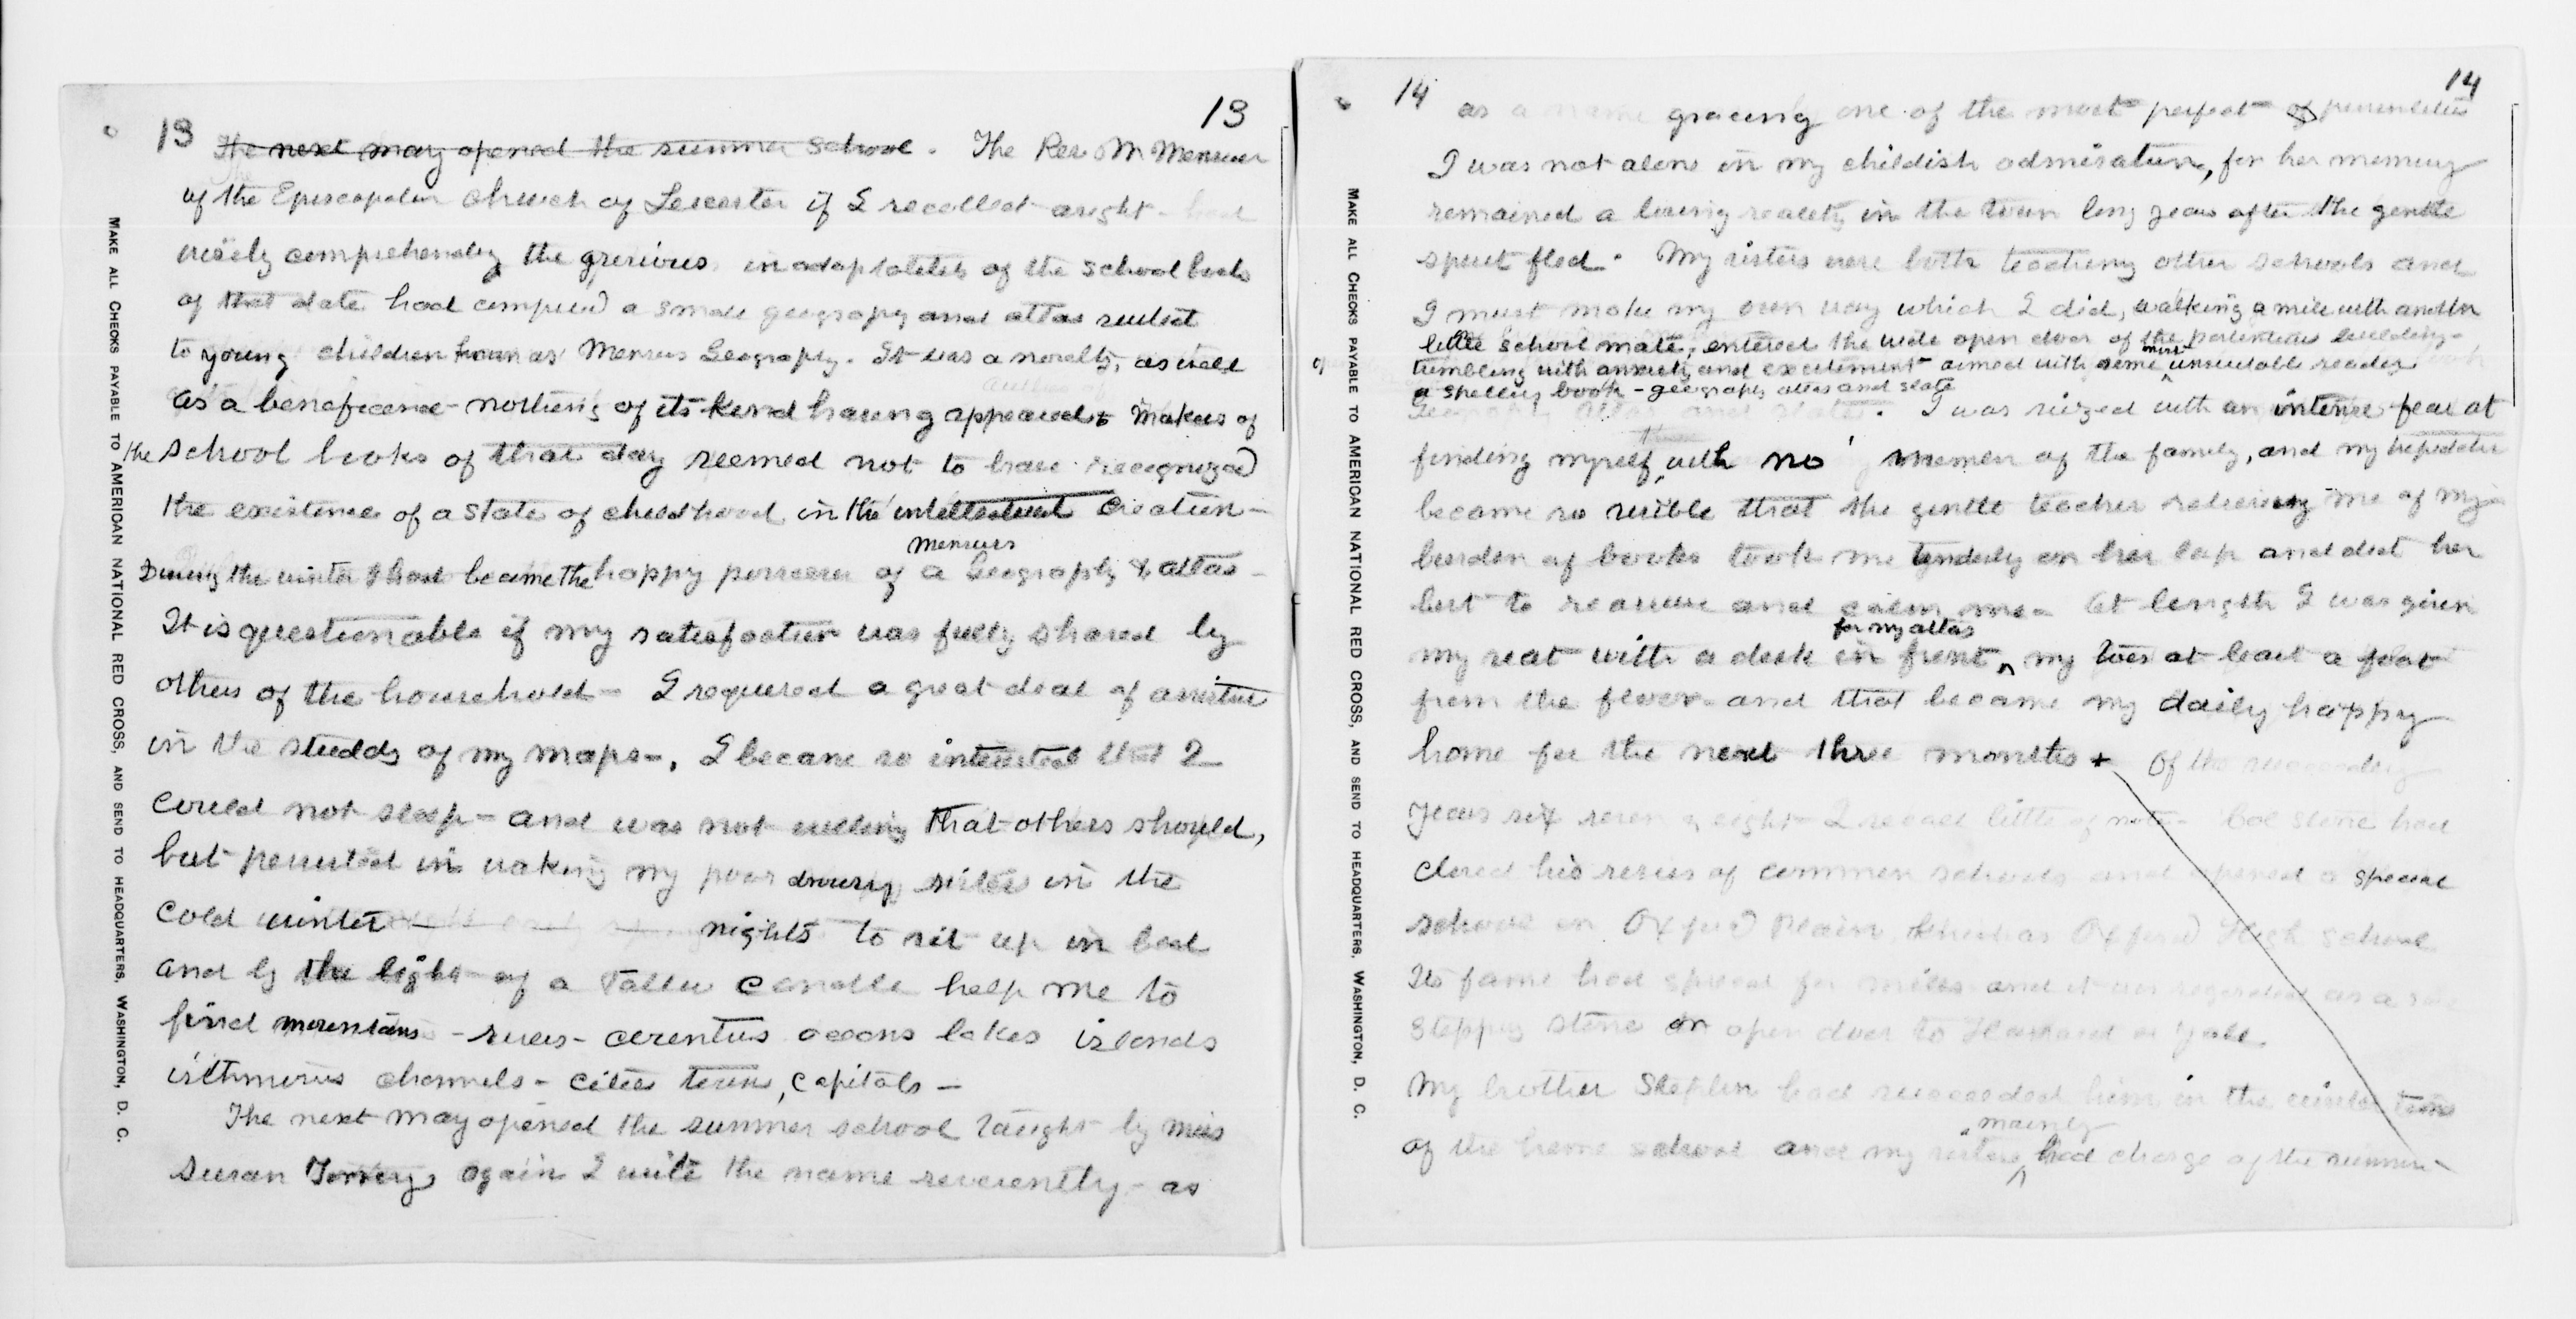 13
13
The next may opened the summer school. The Rev Mr Mensur
of the Episcopalian church of Leicester if I recollect aright - had
wisely comprehending the grevious inadaptability of the school books
of that date had compiled a small geography and atlas suited
to young children known as Mensurs Geography. It was a novelty, as well
as a beneficence - nothing of its kind having appeared & makers of
the school books of that day seemed not to have recognized
the existence of a state of childhood in the intellectual creation -
During the winter I had become the happy possessor of a mensurs Geography & atlas -
It is questionable if my satisfaction was fully shared by
others of the household - I required a great deal of assistance
in the study of my maps -, I became so interested that I
could not sleep - and was not willing that others should,
but persisted in waking my poor drowsy sister in the
cold winter nights to sit up in bed
and by the light of a tallow candle help me to
find mountains - rivers - counties oceans lakes islands
isthmuses channels - cities towns, capitals -
The next may opened the summer school taught by miss
Susan Torrey, again I write the name reverently - as
MAKE ALL CHECKS PAYABLE TO AMERICAN NATIONAL RED CROSS, AND SEND TO HEADQUARTERS, WASHINGTON, D. C.
14
14
as a name gracing one of the most perfect of personalities
I was not alone in my childish admiration, for her memory
remained a living reality in the town long years after the gentle
spirit fled. My sisters were both teaching other schools and
I must make my own way which I did, walking a mile with another
little school mate, entered the wide open door of the pretentious building -
trembling with anxiety and excitement armed with some most unsuitable reader
a spelling book - geography atlas and slate
. I was seized with an intense fear at
finding myself with no member of the family, and my trepidation
became so visible that the gentle teacher relieving me of my
burden of books took me tenderly on her lap and did her
best to reassure and calm me - At length I was given
my seat with a desk in front for my atlas my toes at least a foot
from the floor - and that became my daily happy
home for the next three months + Of the succeeding
years six seven & eight - I recall little of note - Col Stone had
closed his series of common schools and opened a special
school on Oxford Plain known as Oxford High School
Its fame had spread for miles and it was regarded as a
stepping stone or open door to Harvard or Yale.
My brother Stephen had succeeded him in the winter terms
of the home school and my sisters mainly had charge of the summer -
MAKE ALL CHECKS PAYABLE TO AMERICAN NATIONAL RED CROSS, AND SEND TO HEADQUARTERS, WASHINGTON, D. C.